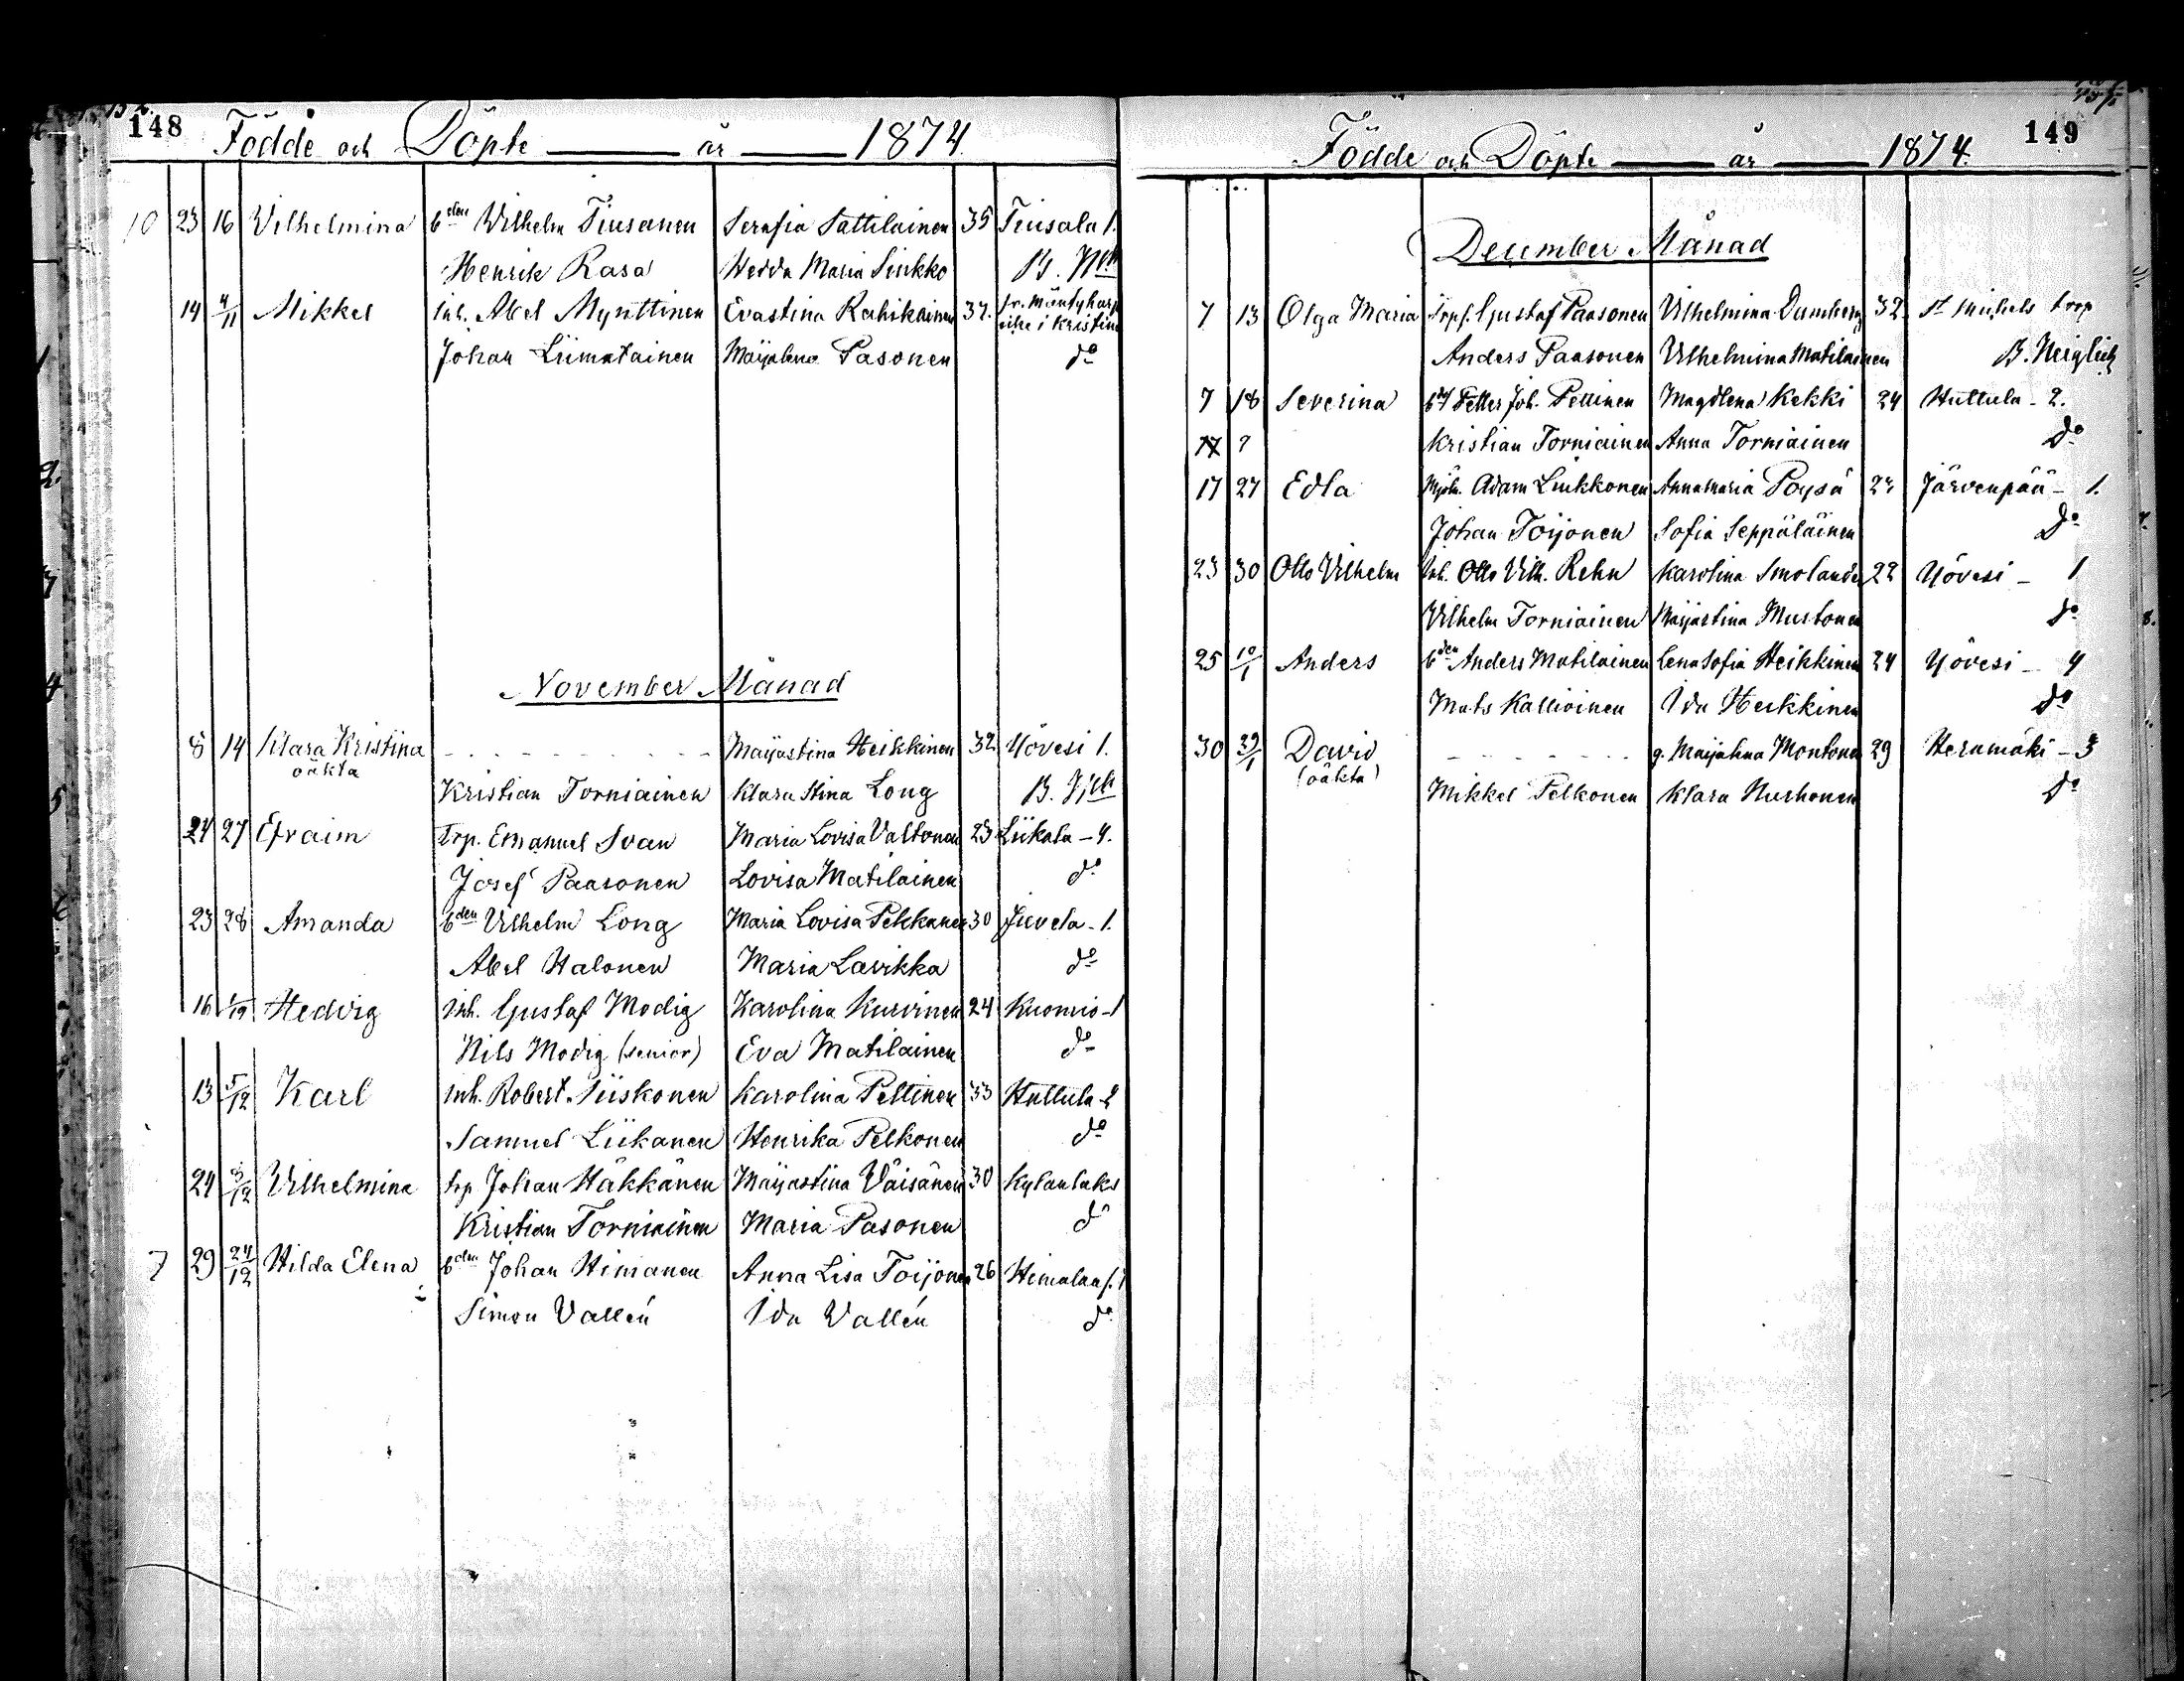 148
Födde och Döpte år 1874.
10 23 16 Vilhelmina bden Vilhelm Tiusanen Serafia Sattilainen 35 Tiusala 1.
Henrik Rasa Hedda Maria Sinkko B.
14 4/11 Mikkel Inh. Abel Mynttinen Evastina Rahikainen 37. fr. Mäntyharju
i Kristina
Johan Liimatainen Maijalena Pasonen do
November Månad
8 14 Klara Kristina Maijastina Heikkinen 32 Yövesi 1.
oäkta
Kristian Torniainen Klara Stina Long B.
24 27 Efraim Trp. Emanuel Svan Maria Lovisa Valtonen 23 Liikala - 4.
Josef Paasonen Lovisa Matilainen do
23 28 Amanda bden Vilhelm Long Maria Lovisa Pekkanen 30 Juvela - 1.
Abel Halonen Maria Lavikka do
16 1/12 Hedvig Inh. Gustaf Modig Karolina Kurvinen 24 Kuomio - 1
Nils Modig (senior) Eva Matilainen do
13 5/12 Karl Inh. Robert Siiskonen Karolina Pettinen 33 Huttula - 2
Samuel Liikanen Henrika Pelkonen do
24 /12 Vilhelmina trp Johan Häkkänen Maijastina Väisänen 30 Kylänlaks
Kristian Torniainen Maria Pasonen do
7 29 24/12 Hilda Elena bden Johan Himanen Anna Lisa Toijonen 26 Himalans. 1
Simon Vallén Ida Vallén do
149
Födde och Döpte år 1874.
December Månad
7 13 Olga Maria Trp. Gustaf Paasonen Vilhelmina Dumberg 32 St Michels torp
Anders Paasonen Vilhelmina Matilainen B. Neiglick
7 18 Severina Petter Joh. Pettinen Magdlena Kekki 24 Huttula - 2.
17 7 Kristian Torniainen Anna Torniainen do
17 27 Edla Adam Liukkonen Annamaria Poysä 27 Järvenpää - 1.
Johan Toijonen Sofia Seppäläinen do
23 30 Otto Vilhelm Inh. Otto Vilh. Rehn Karolina Smolander 22 Yövesi - 1
Vilhelm Torniainen Maijastina Mustonen do
25 10/1 Anders bden Anders Matilainen Lena Sofia Heikkinen 24 Yövesi - 4
Mats Kallioinen Ida Heikkinen do
30 29/1 David g. Maijalena Montonen 29 Heramäki - 3
(oäkta)
Mikkel Pelkonen Klara Hurhonen do